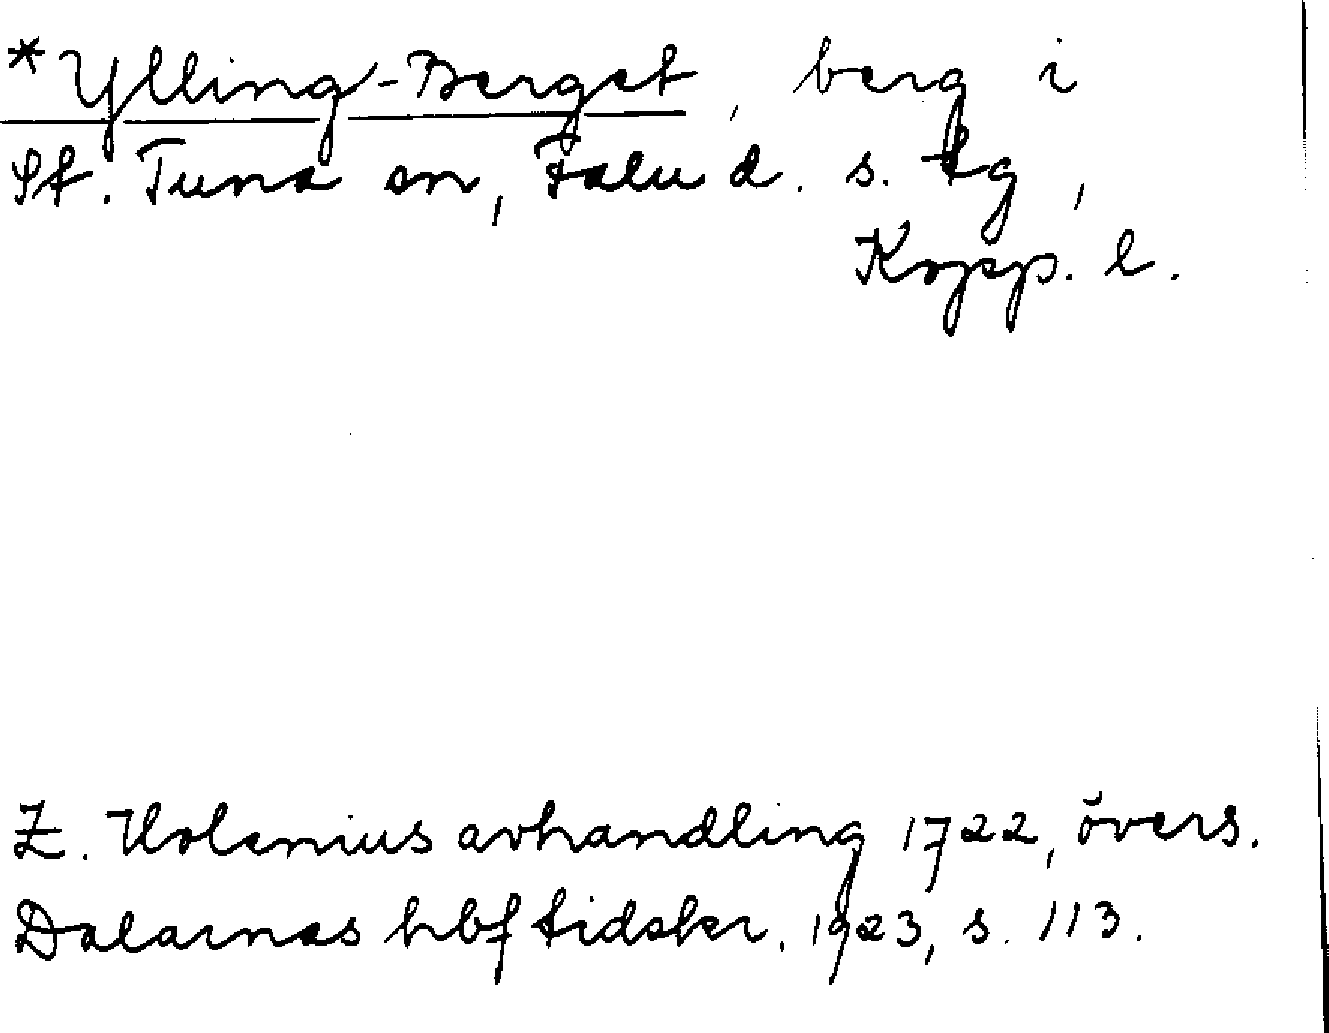 *Ylling-Berget, berg i
St. Tuna sn, Falu d. s. tg,
Kopp. l.
Z. Holenius avhandling 1722, övers.
Dalarnas hbf tidskr. 1923, s. 113.